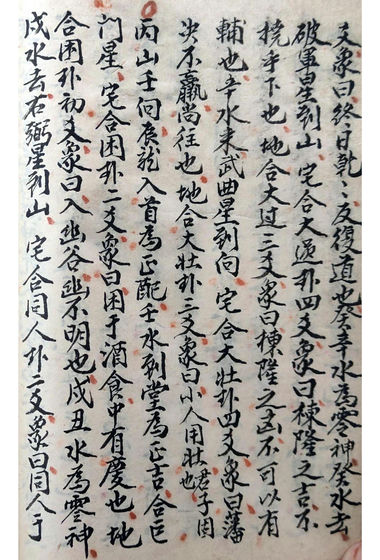 爻象曰終日乾〻反復道也癸辛水為零神癸水去
破軍星到山宅合大過卦四爻象曰棟隆之吉不
橈乎下也地合大过三爻象曰棟隆之凶不可以有
輔也辛水来武曲星到向宅合大壮卦四爻象曰藩
决不羸尚往也地合大壮卦三爻象曰小人用壮也君子罔
丙山壬向辰龍入首為正配壬水到堂為正吉合巨
門星宅合困卦二爻象曰困于酒食中有慶也地
合困卦初爻象曰入幽谷幽不明也戌丑水為零神
戌水去右弼星到山宅合同人卦二爻象曰同人于